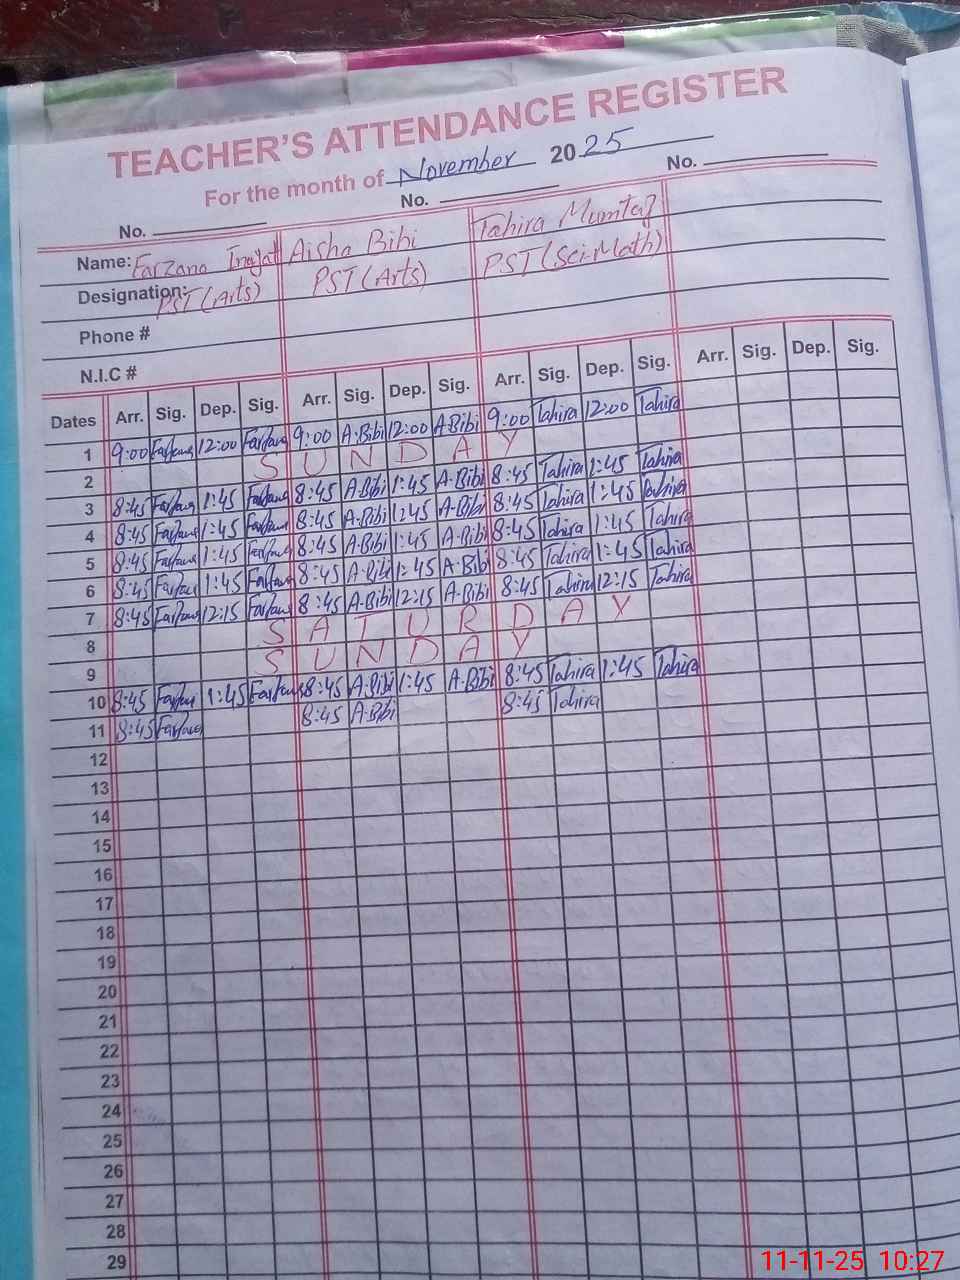 TEACHER'S ATTENDANCE REGISTER
For the month of November 2025
No. No. No.
Name: Farzana Inayat Aisha Bibi Tahira Mumtaz
Designation: PST (Arts) PST (Arts) PST (Sci-Math)
Phone #
N.I.C #
Dates Arr. Sig. Dep. Sig. Arr. Sig. Dep. Sig. Arr. Sig. Dep. Sig. Arr. Sig. Dep. Sig.
1 9:00 Farzana 12:00 Farzana 9:00 A.Bibi 12:00 A.Bibi 9:00 Tahira 12:00 Tahira
2 SUNDAY
3 8:45 Farzana 1:45 Farzana 8:45 A.Bibi 1:45 A.Bibi 8:45 Tahira 1:45 Tahira
4 8:45 Farzana 1:45 Farzana 8:45 A.Bibi 1:45 A.Bibi 8:45 Tahira 1:45 Tahira
5 8:45 Farzana 1:45 Farzana 8:45 A.Bibi 1:45 A.Bibi 8:45 Tahira 1:45 Tahira
6 8:45 Farzana 1:45 Farzana 8:45 A.Bibi 1:45 A.Bibi 8:45 Tahira 1:45 Tahira
7 8:45 Farzana 12:15 Farzana 8:45 A.Bibi 12:15 A.Bibi 8:45 Tahira 12:15 Tahira
8 SATURDAY
9 SUNDAY
10 8:45 Farzana 1:45 Farzana 8:45 A.Bibi 1:45 A.Bibi 8:45 Tahira 1:45 Tahira
11 8:45 Farzana 8:45 A.Bibi 8:45 Tahira
12
13
14
15
16
17
18
19
20
21
22
23
24
25
26
27
28
29
11-11-25 10:27